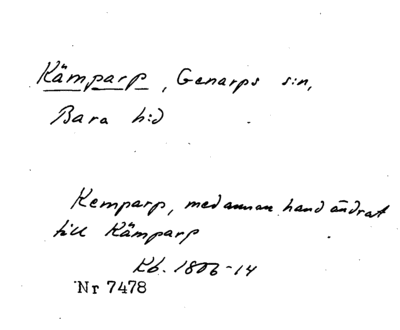 Kämparp, Genarps s:n,
Bara h:d
Kemparp, med annan hand ändrat
till Kämparp
Kb. 1806-14
Nr 7478